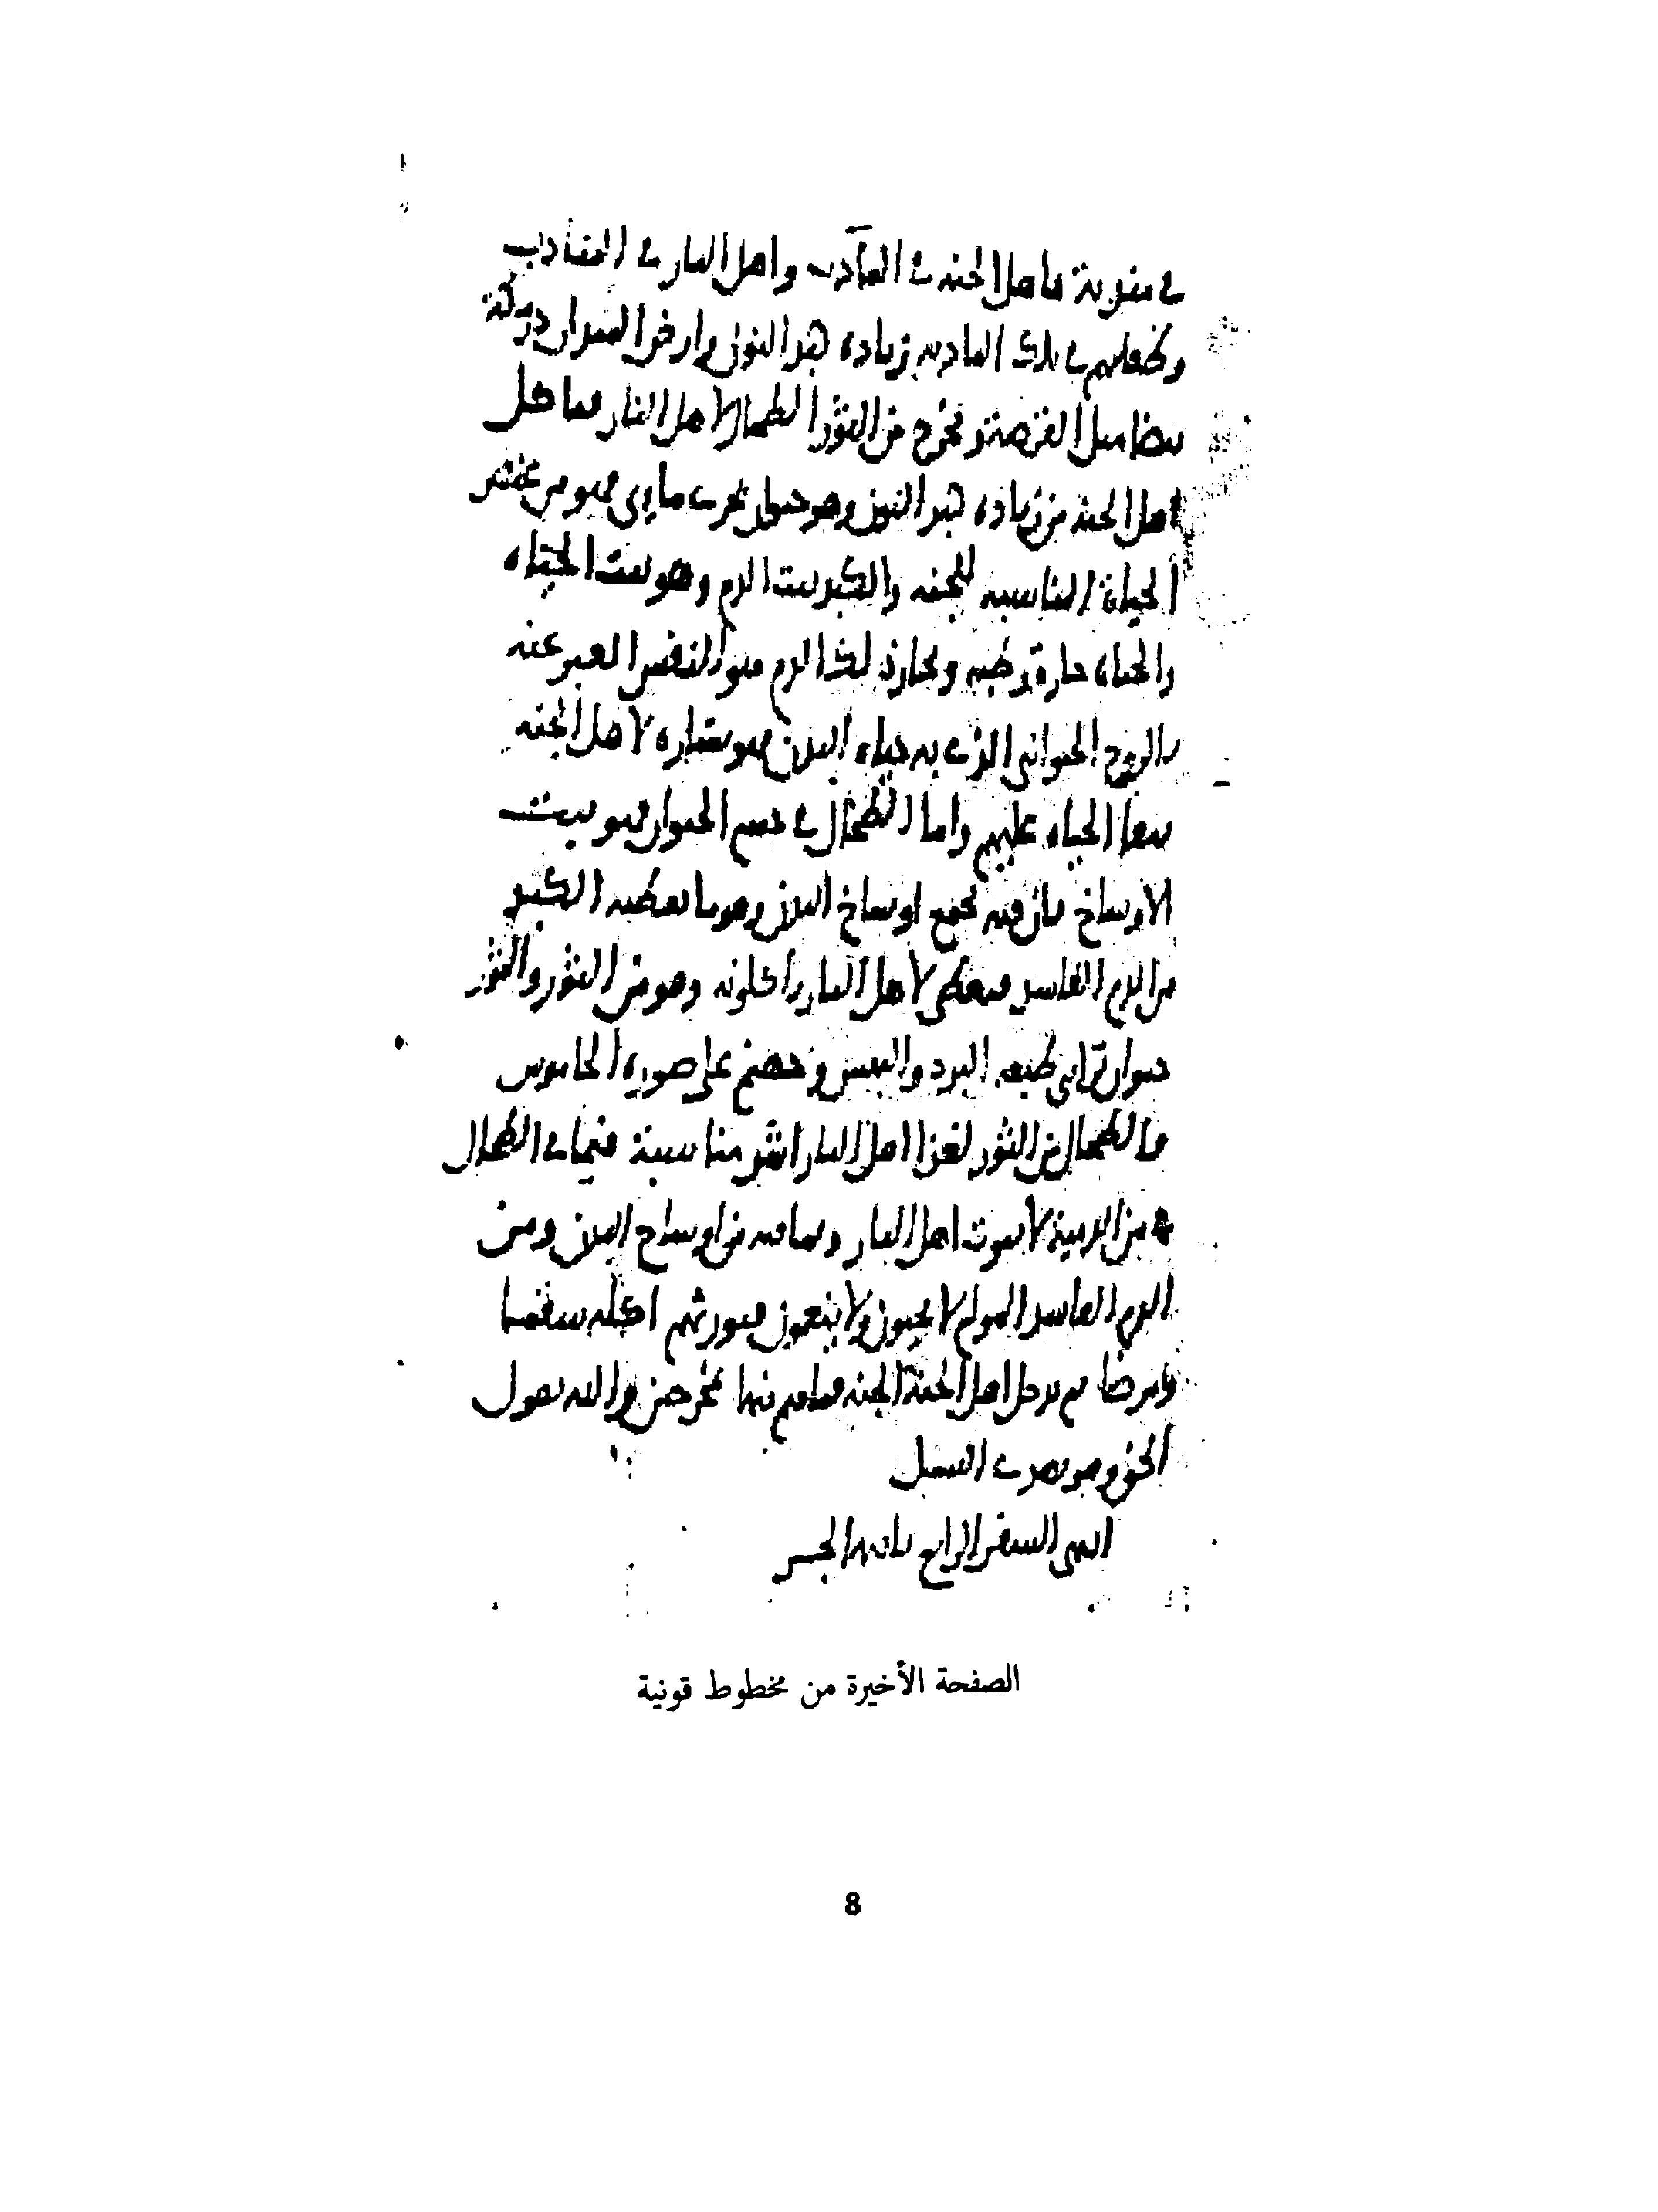 في منزلة فاهل الجنة في المآدب واهل النار في المنادب
وطعامهم في تلك المادبة زيادة كبد النون وارض الميدان درمكة
بيضا مثل القرصة ويخرج من الثور الطحال لاهل النار فياكل
اهل الجنة من زيادة كبد النون وهو حيوان بحري مائي فهو من عنصر
الحياة المناسبة للجنة والكبد بيت الدم وهو بيت الحياة
والحياة حارة رطبة وبخار ذلك الدم هو النفس المعبر عنه
بالروح الحيواني الذي به حياة البدن فهو بشارة لاهل الجنة
ببقا الحياة عليهم واما الطحال في جسم الحيوان فهو بيت
الاوساخ فان فيه تجتمع اوساخ البدن وهو ما يعطيه الكبد
من الدم الفاسد فيعطى لاهل النار ياكلونه وهو من الثور والثور
حيوان ترابي طبعه البرد واليبس وجهنم على صورة الجاموس
فالطحال من الثور لغذا اهل النار اشد مناسبة فبما في الطحال
من الدمية لا يموت اهل النار وبما فيه من اوساخ البدن ومن
الدم الفاسد المولم لا يحيون ولا ينعمون فيورثهم اكله سقما
ومرضا ثم يدخل اهل الجنة الجنة فما هم منها بمخرجين والله يقول
الحق وهو يهدي السبيل
انتهى السفر الرابع بانتها الجـ
الصفحة الأخيرة من مخطوط قونية
8